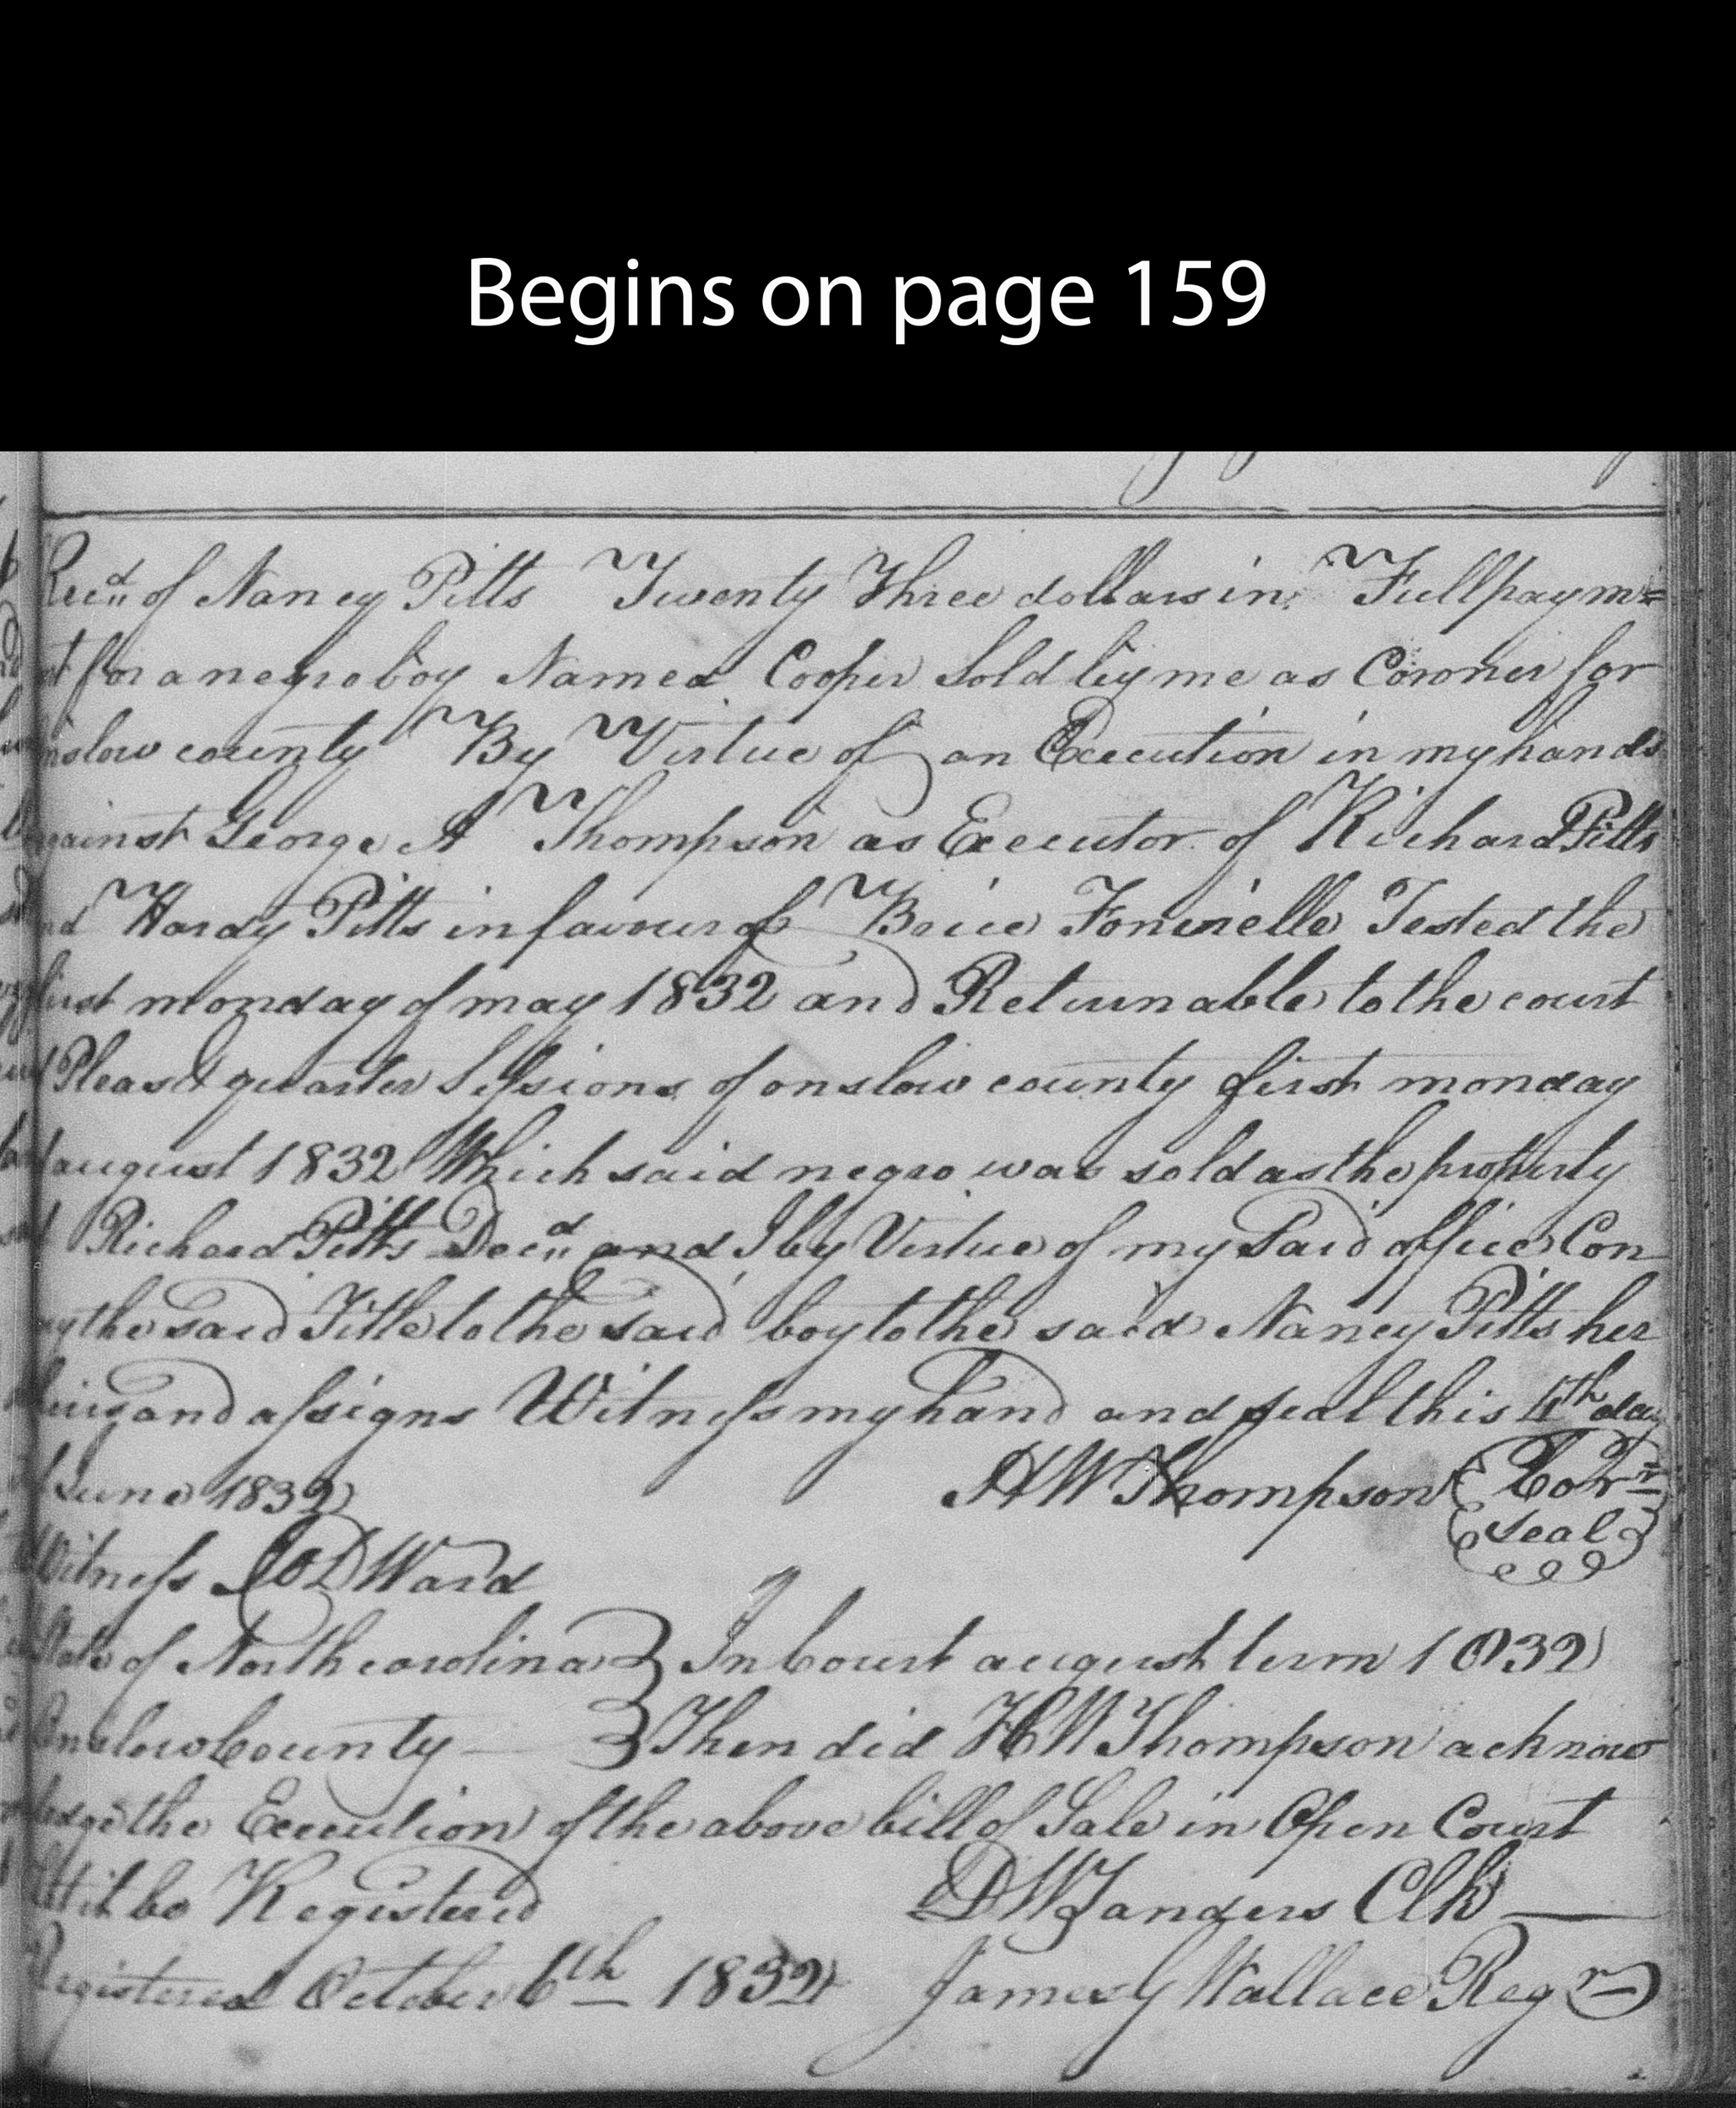 Begins on page 159
Recd of Nancy Pitts Twenty Three dollars in Full paym=
nt for a negro boy Named Cooper Sold by me as Coroner for
nslow county By Virtue of an Execution in my hands
gainst George A Thompson as Executor of Richard Pitts
nd Hardy Pitts in favour of Brice Fonvielle Tested the
first monday of may 1832 and Returnable to the court
Pleas & quarter Sessions of onslow county first monday
august 1832 Which said negro was sold as the property
Richard Pitts Decd and I by Virtue of my Said office Con
ey the Said Title to the Said boy to the said Nancy Pitts her
heirs and assigns Witness my hand and seal this 4th day
June 1832 HW Thompson Corr
seal
Witness D Ward
State of North carolina In Court august term 1832
Onslow County Then did HW Thompson acknow
ledge the Execution of the above bill of Sale in Open Court
Let it be Registered DW Sanders Clk
Registered October 6th 1832 James G Wallace Regr